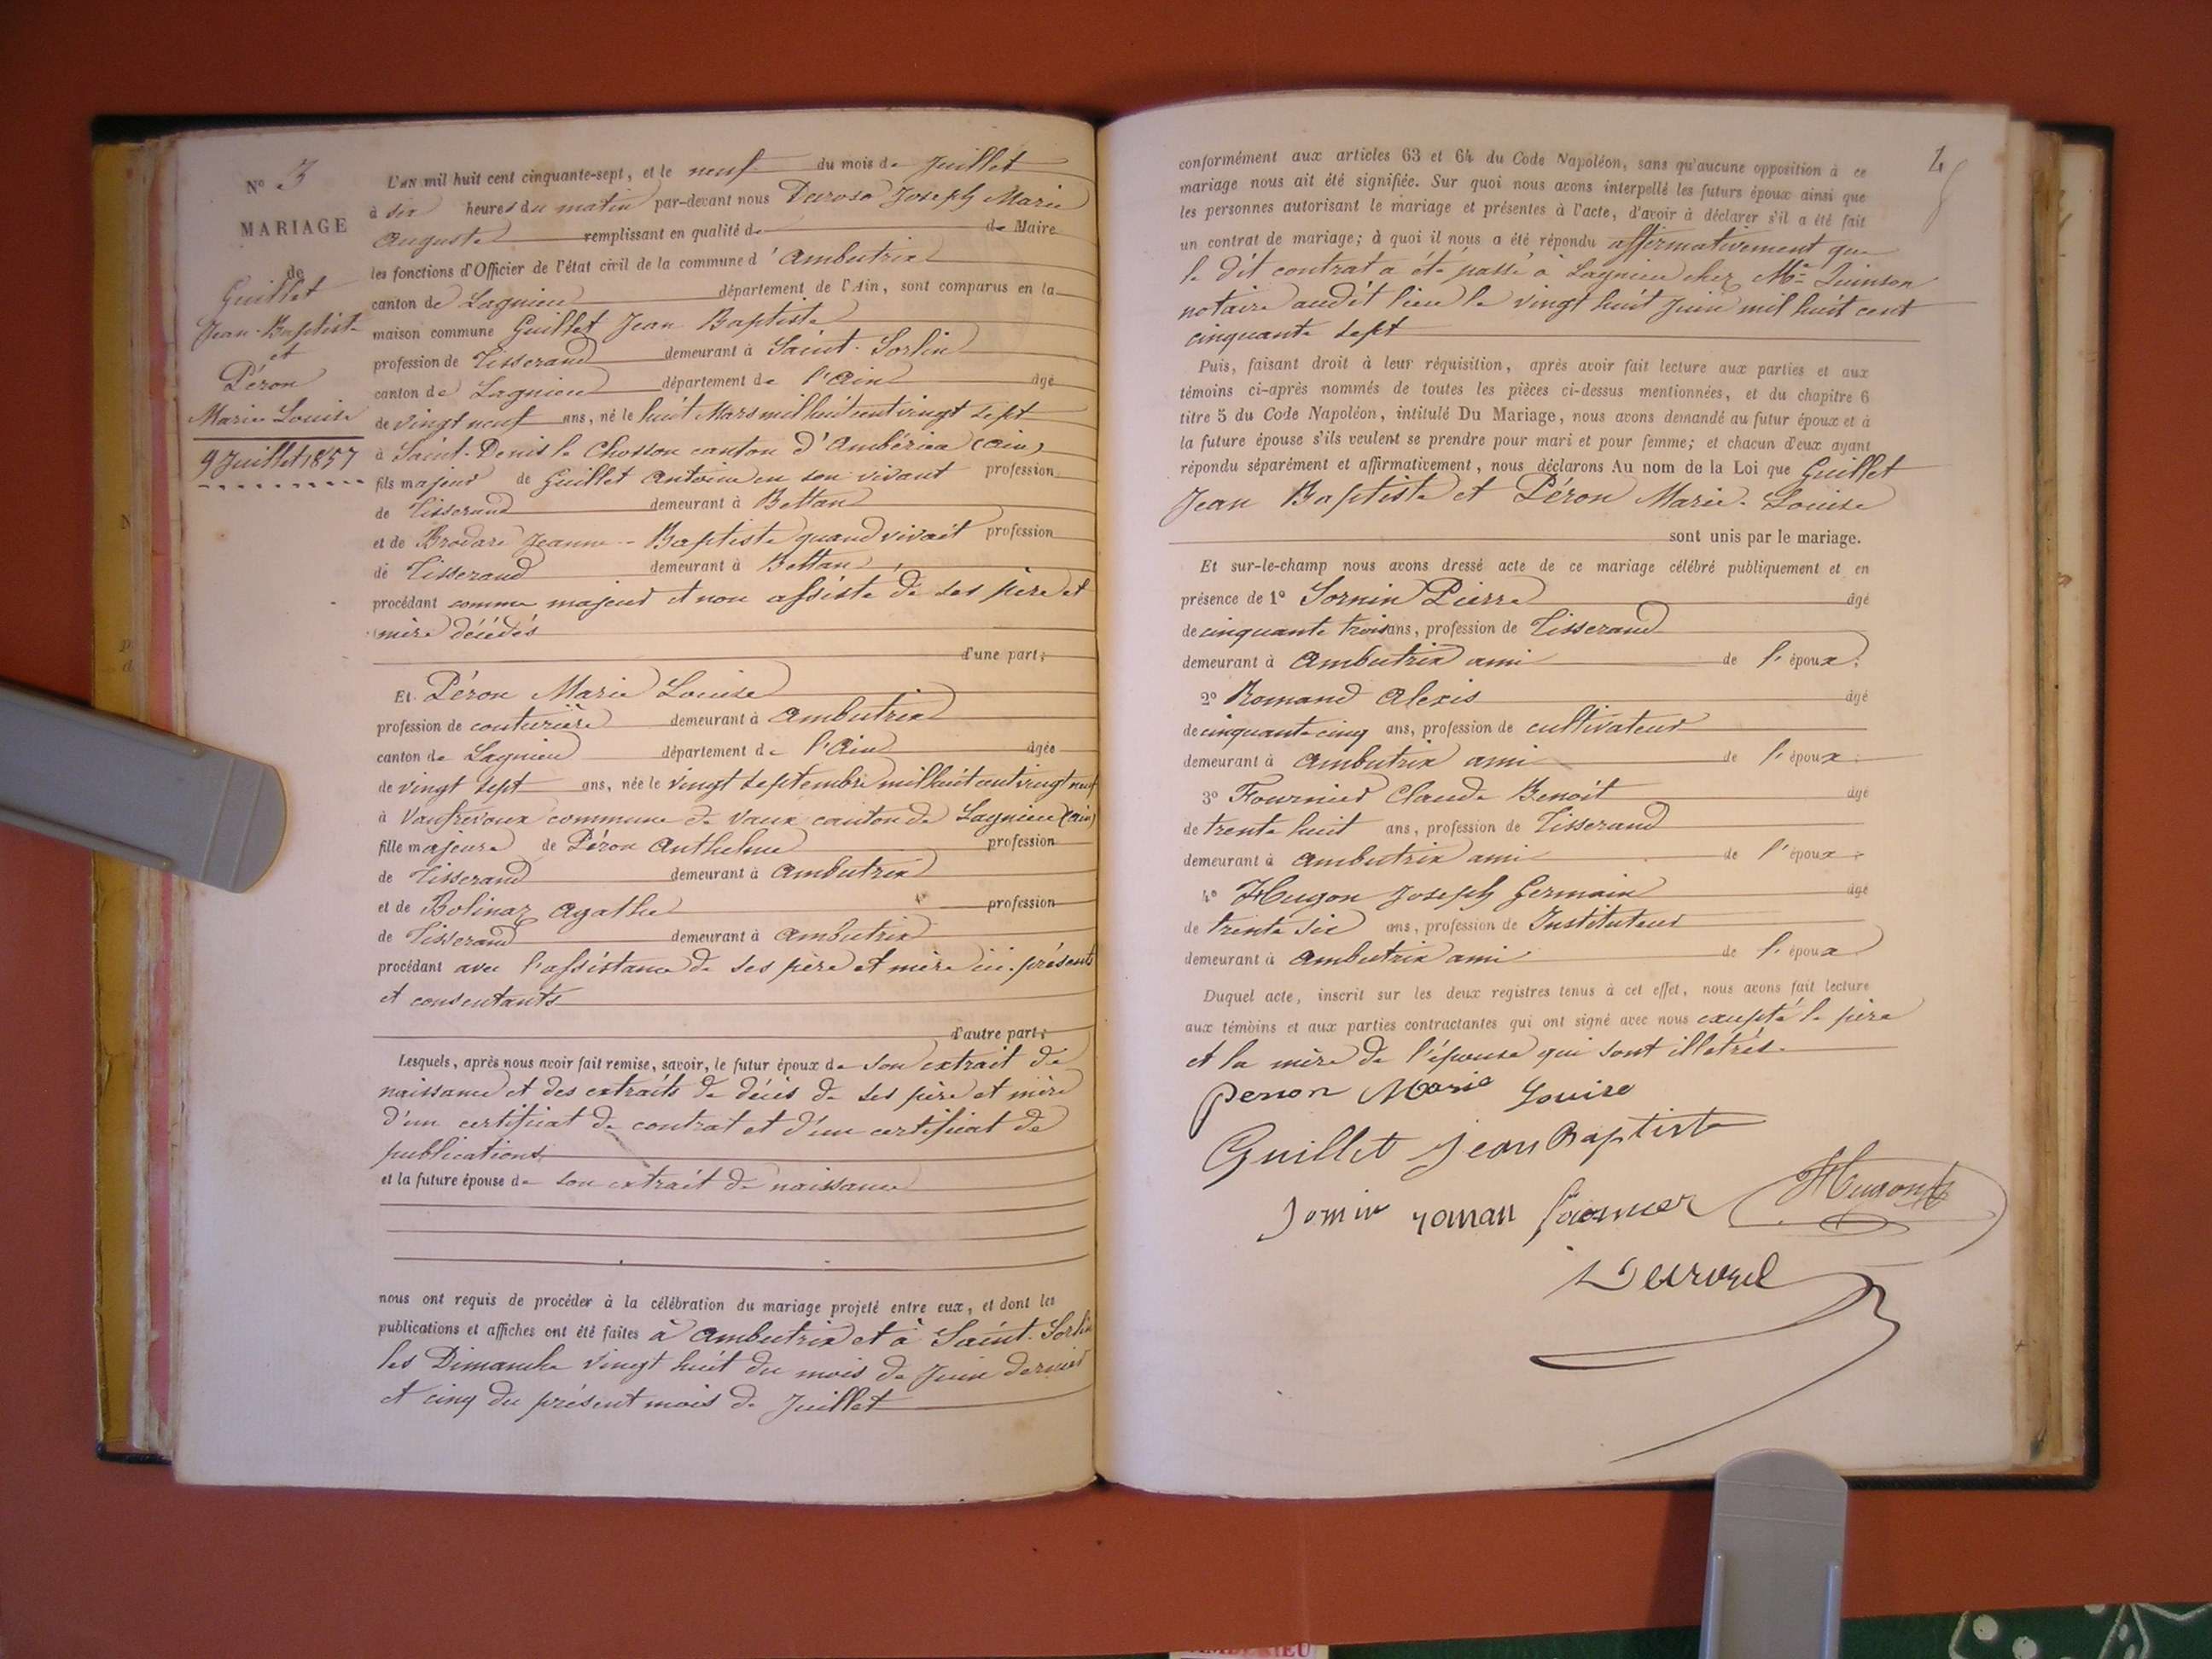 N° 3
MARIAGE
de
Guillet
Jean-Baptiste
et
Péron
Marie Louise
9 Juillet 1857
L'AN mil huit cent cinquante-sept, et le neuf du mois de Juillet
à six heures du matin par-devant nous Durose Joseph Marie
Auguste remplissant en qualité de de Maire
les fonctions d'Officier de l'état civil de la commune d'Ambutrix
canton de Lagnieu département de l'Ain, sont comparus en la
maison commune Guillet Jean Baptiste
profession de Tisserand demeurant à Saint-Sorlin
canton de Lagnieu département de l'Ain âgé
de vingt neuf ans, né le huit Mars mil huit cent vingt sept
à Saint-Denis le Chosson canton d'Ambérieu (Ain)
fils majeur de Guillet Antoine en son vivant profession
de Tisserand demeurant à Bettan
et de Brodard Jeanne-Baptiste quand vivait profession
de Tisserand demeurant à Bettan
procédant comme majeur et non assisté de ses père et
mère décédés
d'une part;
Et Péron Marie Louise
profession de couturière demeurant à Ambutrix
canton de Lagnieu département de l'Ain âgée
de vingt sept ans, née le vingt septembre mil huit cent vingt neuf
à Vaufrevoux commune de Vaux canton de Lagnieu (Ain)
fille majeure de Péron Anthelme profession
de Tisserand demeurant à Ambutrix
et de Bolinaz Agathe profession
de Tisserand demeurant à Ambutrix
procédant avec l'assistance de ses père et mère ici présents
et consentants
d'autre part;
Lesquels, après nous avoir fait remise, savoir, le futur époux de son extrait de
naissance et des extraits de décès de ses père et mère
d'un certificat de contrat et d'un certificat de
publications
et la future épouse de son extrait de naissance
nous ont requis de procéder à la célébration du mariage projeté entre eux, et dont les
publications et affiches ont été faites à Ambutrix et à Saint-Sorlin
les Dimanche vingt huit du mois de Juin dernier
et cinq du présent mois de Juillet
4
conformément aux articles 63 et 64 du Code Napoléon, sans qu'aucune opposition à ce
mariage nous ait été signifiée. Sur quoi nous avons interpellé les futurs époux ainsi que
les personnes autorisant le mariage et présentes à l'acte, d'avoir à déclarer s'il a été fait
un contrat de mariage; à quoi il nous a été répondu affirmativement que
le dit contrat a été passé à Lagnieu chez Me Quinson
notaire audit lieu le vingt huit Juin mil huit cent
cinquante sept
Puis, faisant droit à leur réquisition, après avoir fait lecture aux parties et aux
témoins ci-après nommés de toutes les pièces ci-dessus mentionnées, et du chapitre 6
titre 5 du Code Napoléon, intitulé Du Mariage, nous avons demandé au futur époux et à
la future épouse s'ils veulent se prendre pour mari et pour femme; et chacun d'eux ayant
répondu séparément et affirmativement, nous déclarons Au nom de la Loi que Guillet
Jean Baptiste et Péron Marie-Louise
sont unis par le mariage.
Et sur-le-champ nous avons dressé acte de ce mariage célébré publiquement et en
présence de 1° Sornin Pierre âgé
de cinquante trois ans, profession de Tisserand
demeurant à Ambutrix ami de l'époux;
2° Romand Alexis âgé
de cinquante cinq ans, profession de cultivateur
demeurant à Ambutrix ami de l'époux;
3° Fournier Claude Benoit âgé
de trente huit ans, profession de Tisserand
demeurant à Ambutrix ami de l'époux;
4° Hugon Joseph Germain âgé
de trente six ans, profession de Instituteur
demeurant à Ambutrix ami de l'époux
Duquel acte, inscrit sur les deux registres tenus à cet effet, nous avons fait lecture
aux témoins et aux parties contractantes qui ont signé avec nous excepté le père
et la mère de l'épouse qui sont illetrés.
peron Marie Louise
Guillet Jean Baptiste
Sornin roman fournier Hugon